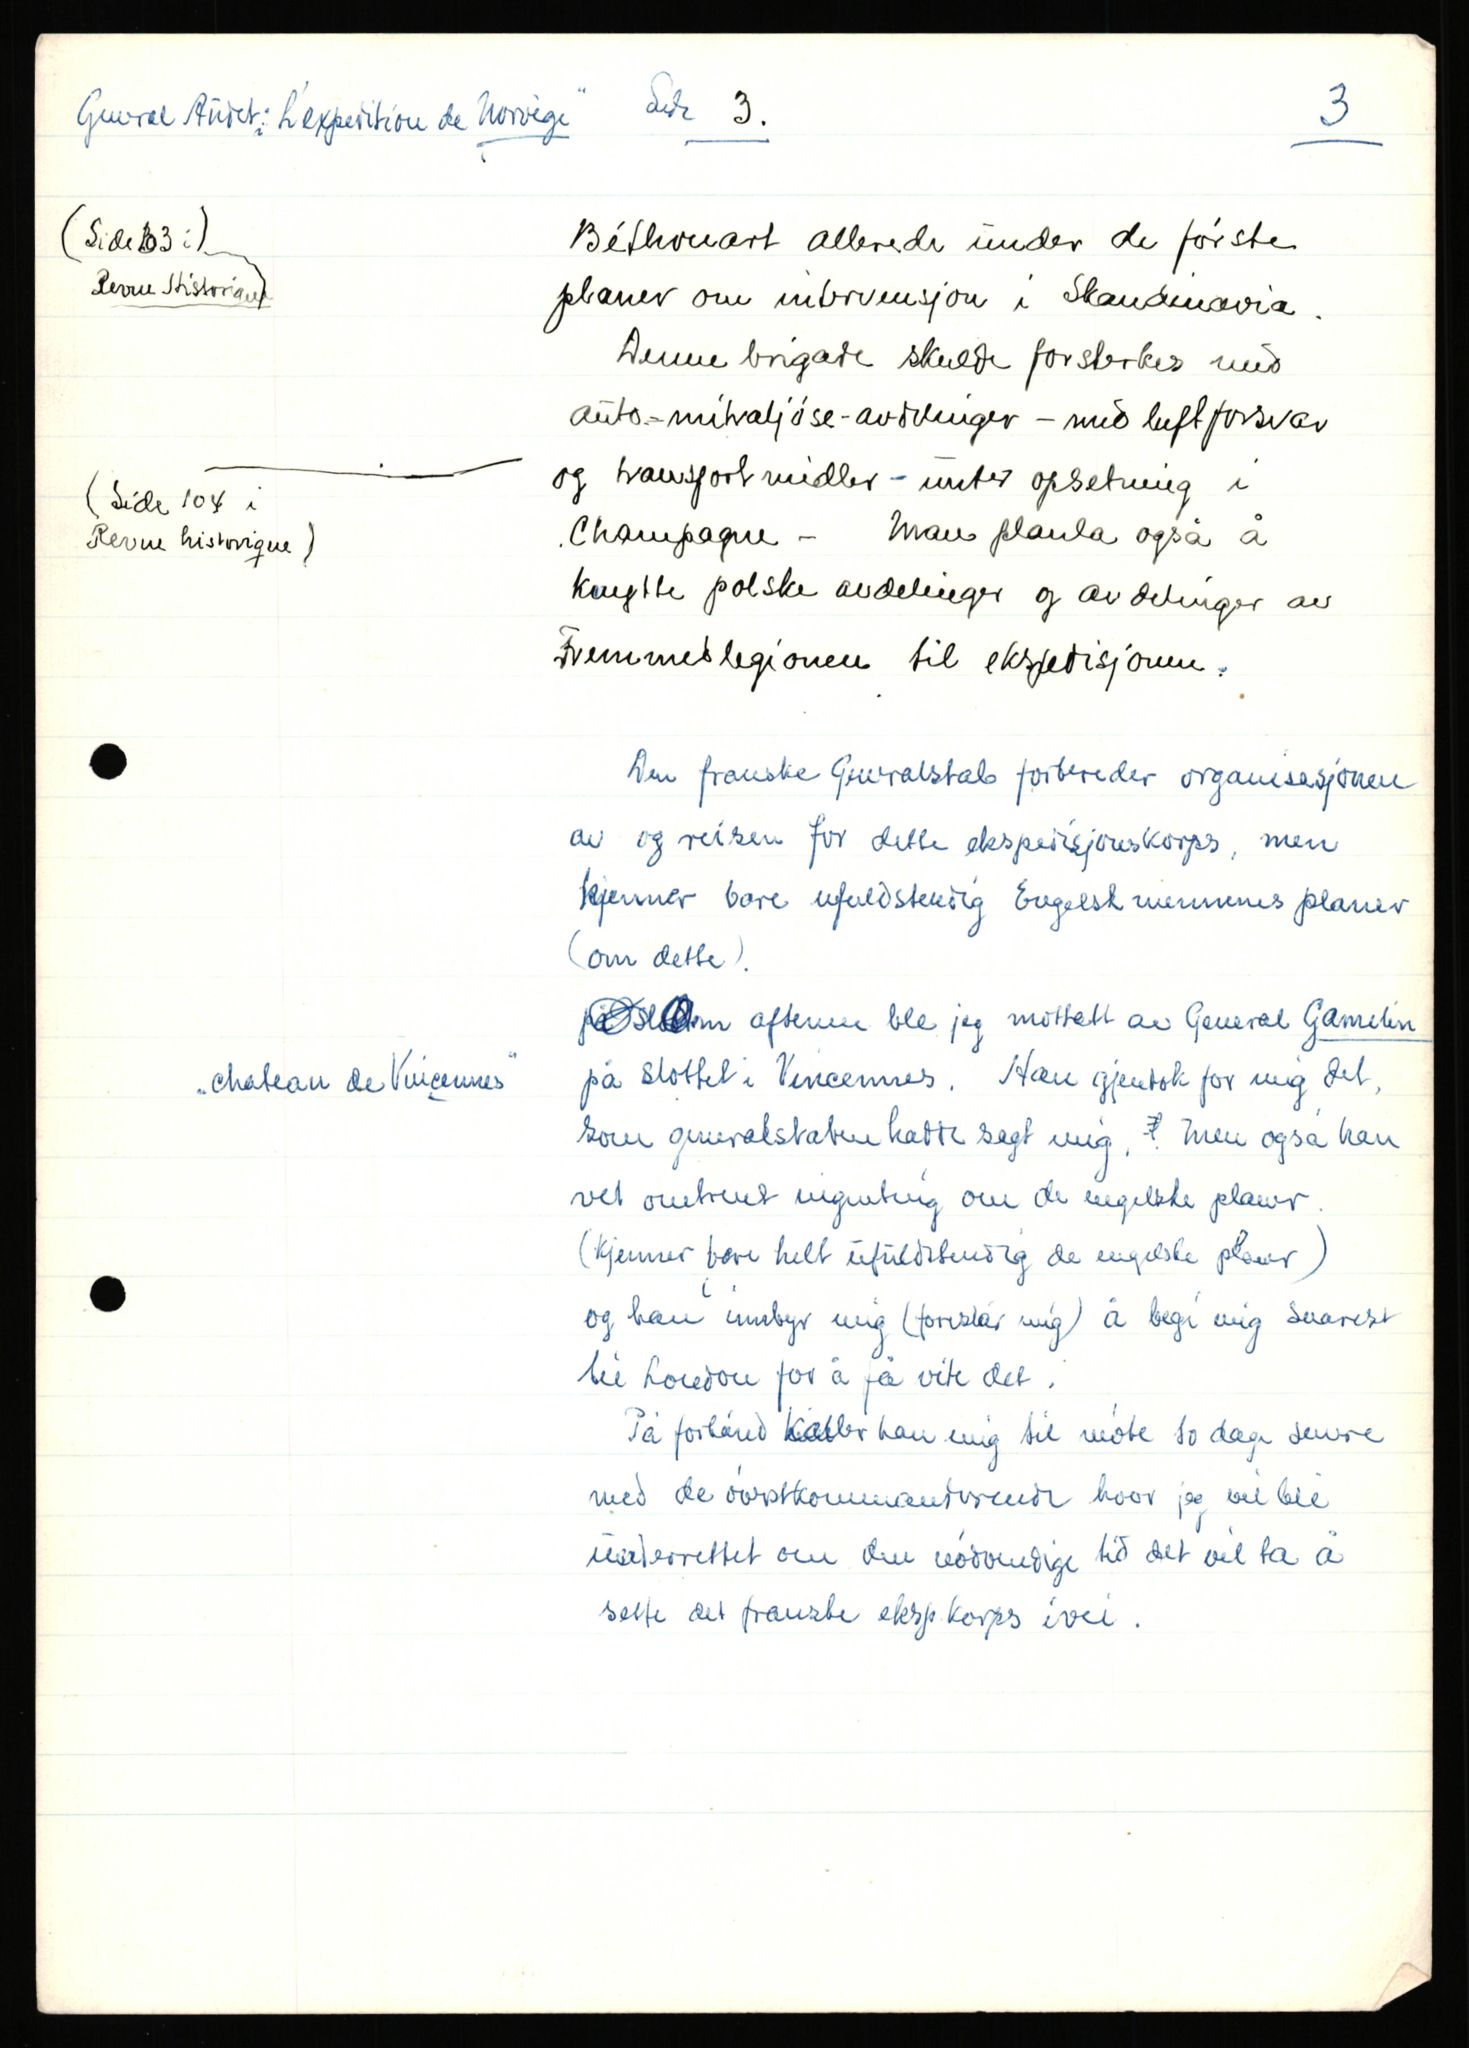 General Audet: "L'expedition de Norvège" Side 3. 3
(Side 103 i)
Revue Historique
Béthouart allerede under de første
planer om intervensjon i Skandinavia.
Denne brigade skulde forsterkes med
auto-mitraljøse-avdelinger – med luftforsvar
og transportmidler – under opsetning i
(Side 104 i
Revue historique)
Champagne – Man planla også å
knytte polske avdelinger og avdelinger av
Fremmedlegionen til ekspedisjonen.
Den franske Generalstab forbereder organisasjonen
av og reisen for dette ekspedisjonskorps, men
kjenner bare ufuldstendig Engelskmennenes planer
(om dette).
Om aftenen ble jeg mottatt av General Gamelin
"chateau de Vincennes"
på slottet i Vincennes. Han gjentok for mig det,
som generalstaben hadde sagt mig. Men også han
vet omtrent ingenting om de engelske planer.
(kjenner bare helt ufuldstendig de engelske planer)
og han innbyr mig (foreslår mig) å begi mig snarest
til London for å få vite det.
På forhånd kaller han mig til møte to dage senere
med de øverstkommanderende hvor jeg vil bli
underrettet om den nødvendige tid det vil ta å
sette det franske eksp. korps ivei.